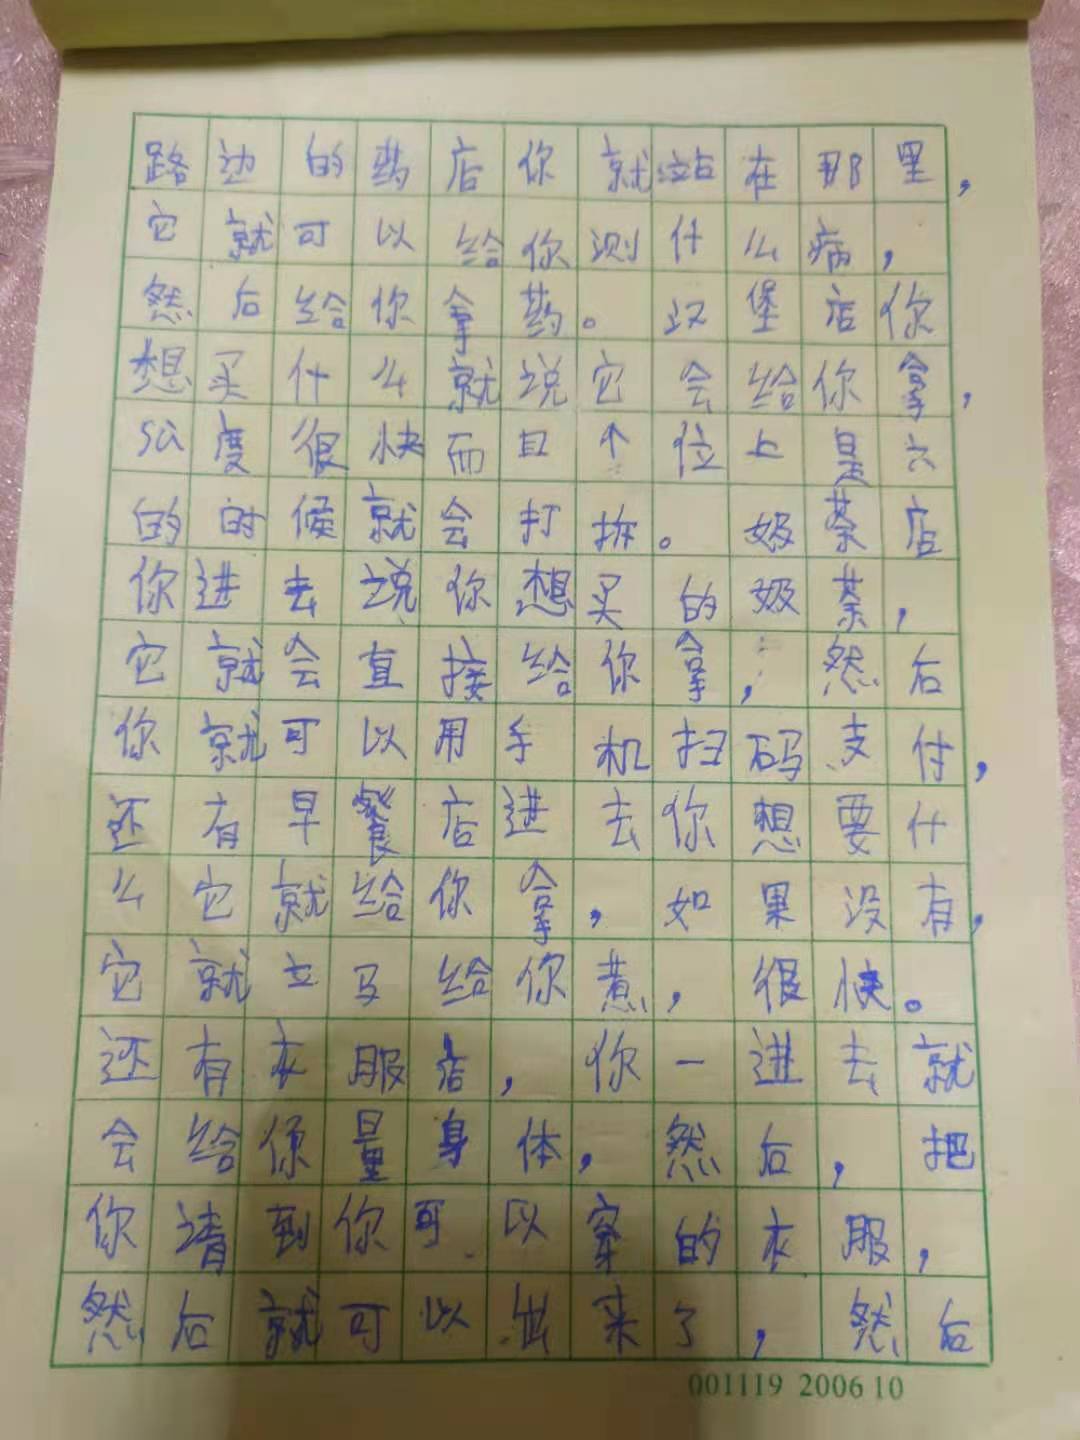 路边的药店你就站在那里，
它就可以给你测什么病，
然后给你拿药。汉堡店你
想买什么就说它会给你拿，
公度很快而且个位上是六
的的时候就会打拆。奶茶店
你进去说你想买的奶茶，
它就会直接给你拿，然后
你就可以用手机扫码支付，
还有早餐店进去你想要什
么它就给你拿，如果没有，
它就立马给你煮，很快。
还有衣服店，你一进去就
会给你量身体，然后，把
你请到你可以穿的衣服，
然后就可以出来了，然后
001119 2006 10